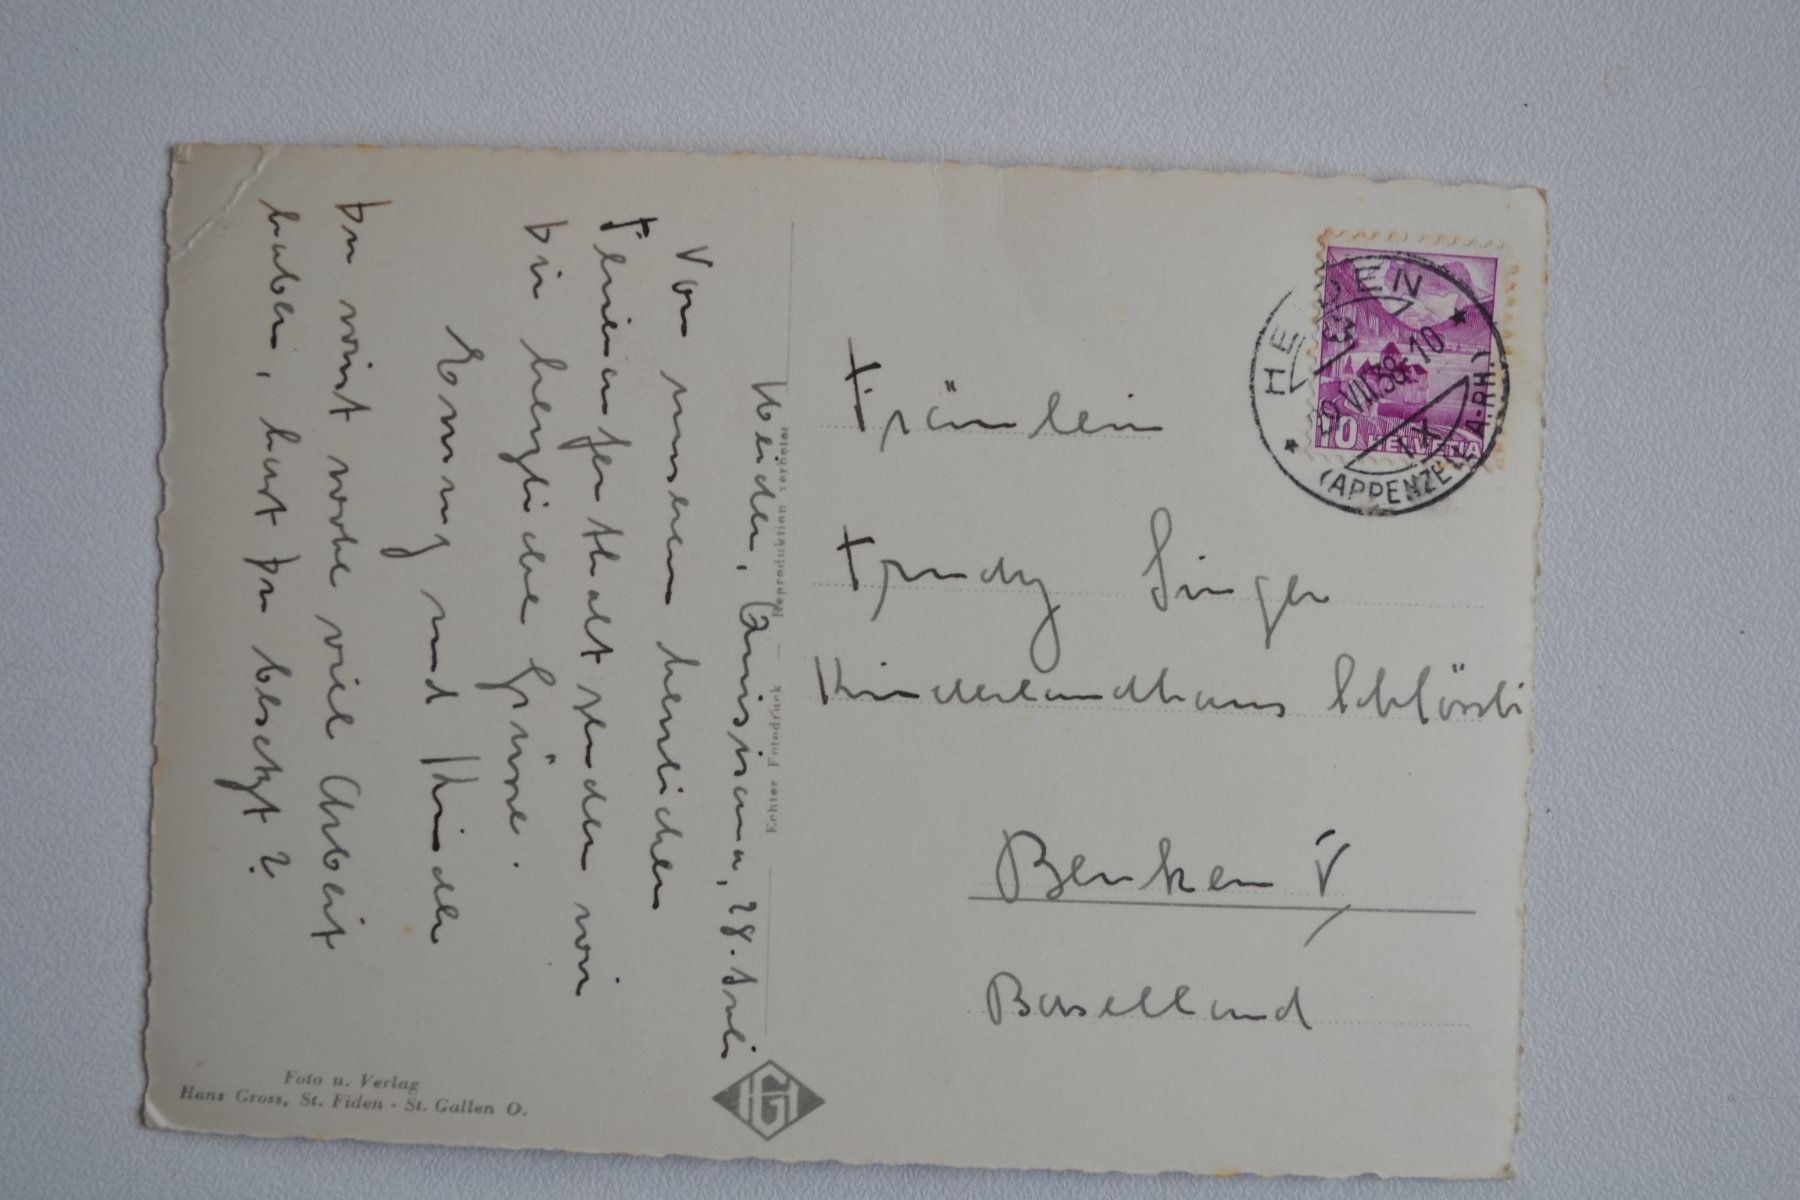 Heiden, Quisisana, 28. Juli
Von unserem herrlichen
Ferienaufenthalt senden wir
Dir herzliche Grüsse.
Emmy und Kinder
Du wirst wohl viel Arbeit
haben, hast Du besetzt?
Fräulein
Trudy Singer
Kinderlandhaus Schlössli
Benken
Baselland
HEIDEN
(APPENZELL A.-RH.)
VII.38-10
IX
10 HELVETIA
Echter Fotodruck — Reproduktion verboten
Foto u. Verlag
Hans Gross, St. Fiden - St. Gallen O.
HG